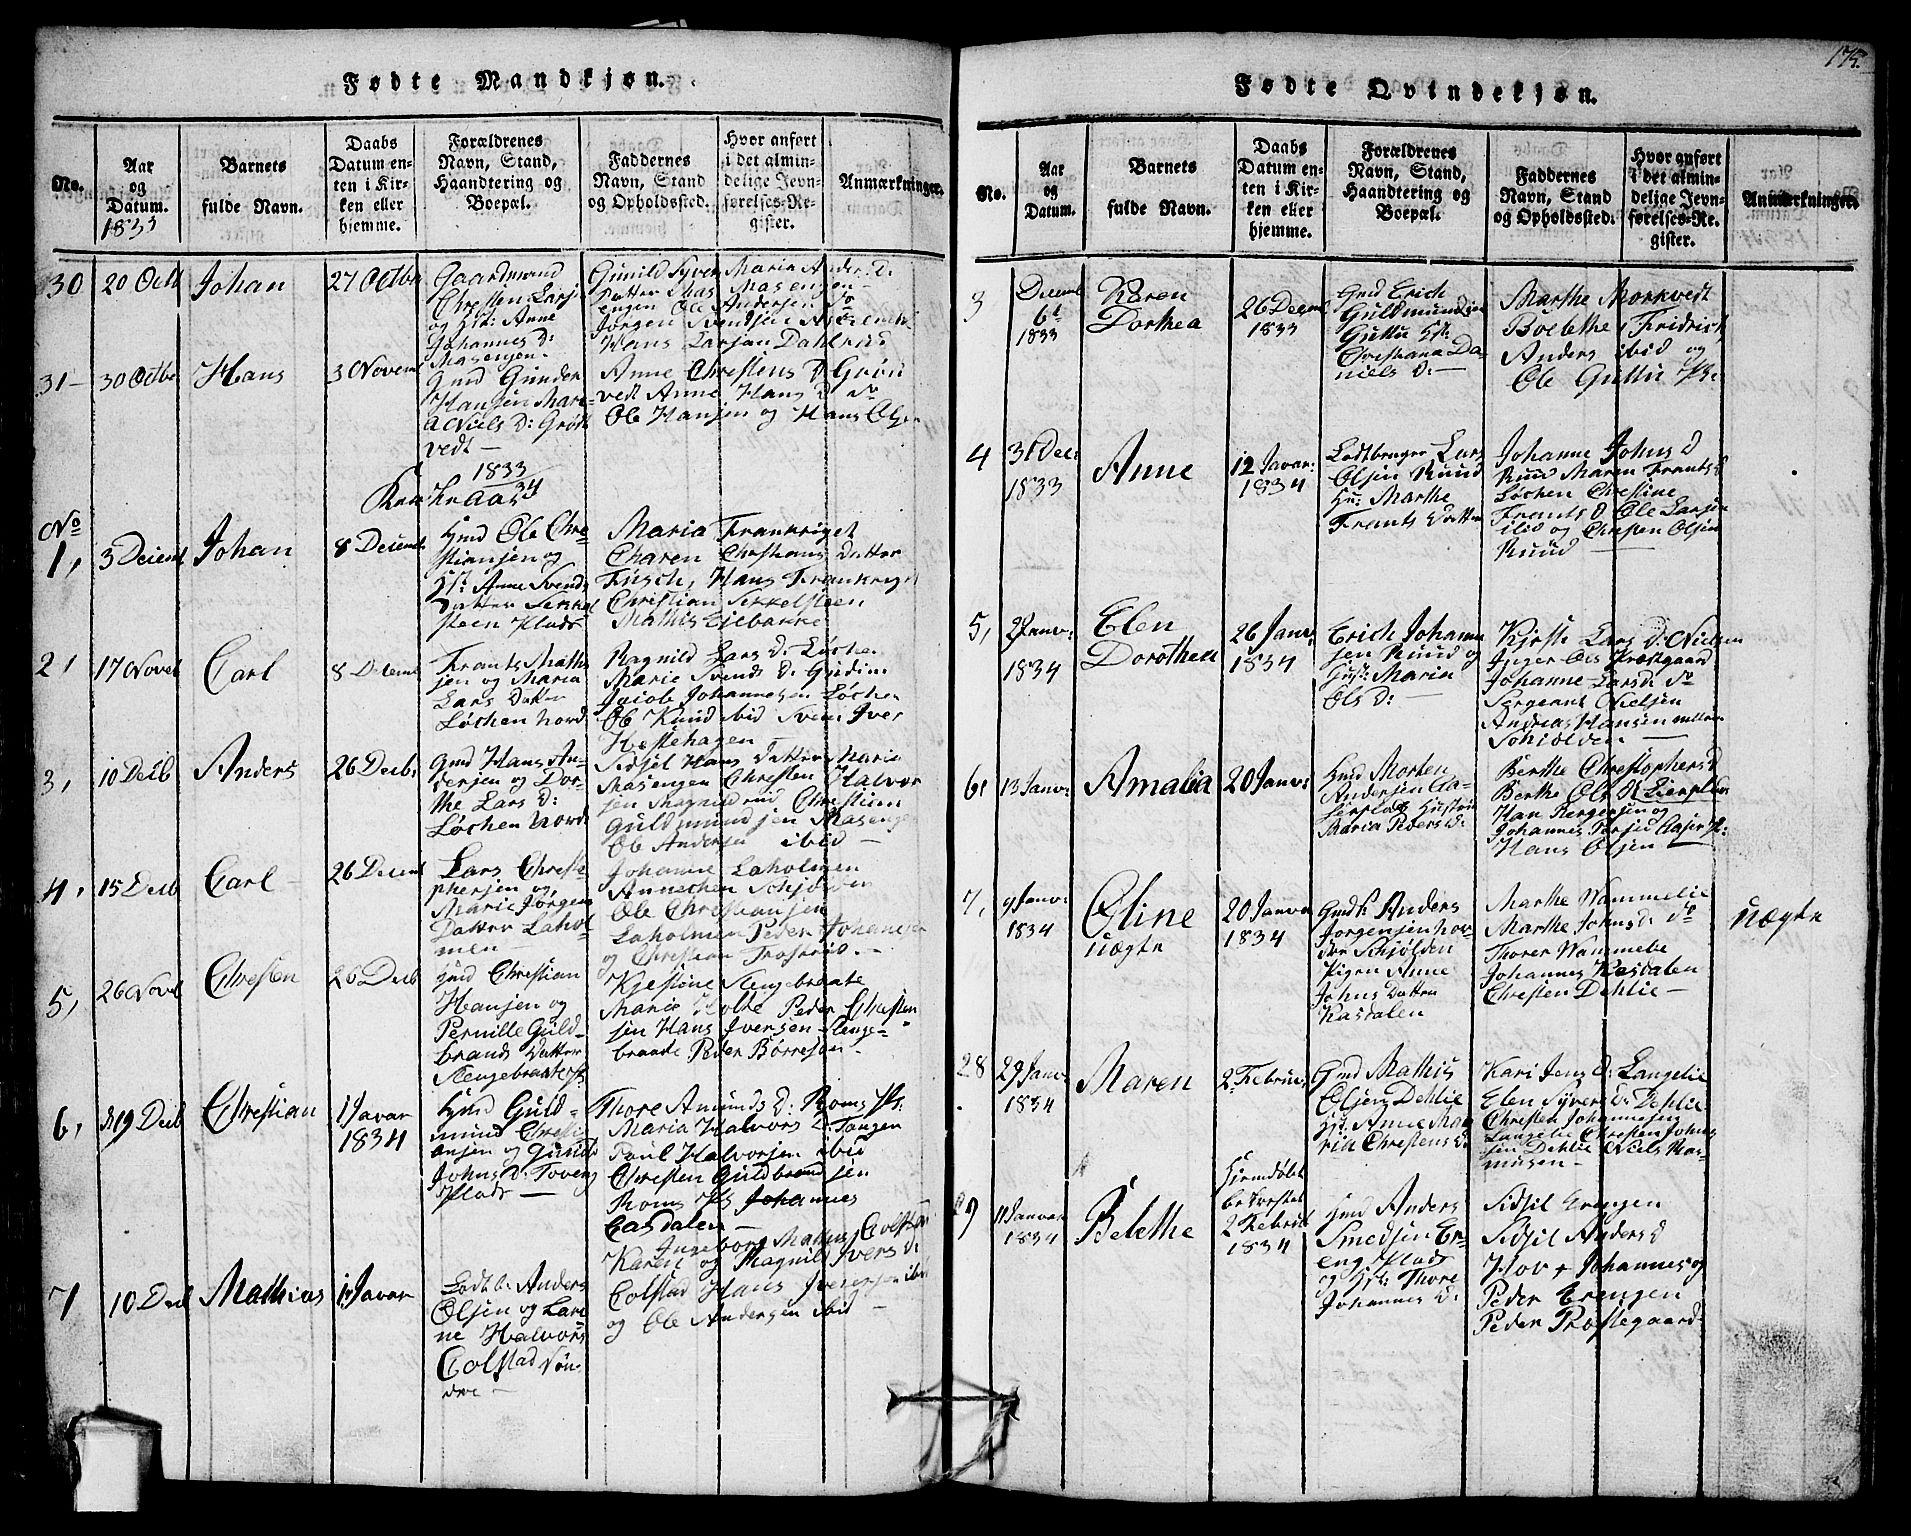 Fødte Mandkjøn.
No.
Aar
og
Datum.
1833
Barnets
fulde Navn.
Daabs
Datum en-
ten i Kir-
ken eller
hjemme.
Forældrenes
Navn, Stand,
Haandtering og
Boepæl.
Faddernes
Navn, Stand
og Opholdssted.
Hvor anført
i det almin-
delige Jevn-
førelses-Re-
gister.
Anmærkninger.
30
20 Octb
Johan
27 Octbr
Gaardmand
Christen Larsen
og Hst: Anne
Johannes D:
Masengen
Gunild Syver
Datter Mas
engen Ole Andersen
Jørgen Svendsen
Hans Larsen Dahlens
Maria Anders D:
Masengen
31
30 Octbr
Hans
3 Novem
Gmd Gunder
Hansen Mari-
a Niels D: Grøt
vedt
Anne Christens D Grøn
vedt Anne Hans D do
Ole Hansen og Hans Olsen
1833
34
No
1,
3 Decemb
Johan
8 Decemb
Hmd Ole Chri-
stiansen og
Hst: Anne Svends
Datter Sekkel
steen Plads
Maria Frankriget
Charen Christians Datter
Fusch, Hans Frankriget
Christian Sekkelsteen
Mathis Eiebakke
2,
17 Noveb
Carl
8 Decemb
Frants Mathi
sen og Maria
Lars Datter
Løchen Nord
Ragnild Lars D: Løchen
Marie Svends D: Gudim
Jacob Johannesen Løchen
Ole Ruud ibid Svend Iver
Hestehagen
3,
10 Decb
Anders
26 Decb:
Gmd Hans An-
dersen og Dor-
the Lars D:
Løchen Nord
Sidsel Hans Datter Marie
Masengen Christen Halvor
sen Magnild
Guldmundsen Masengen
Ole Andersen ibid
4,
15 Decb
Carl
26 Decemb
Lars Christo-
phersen og
Marie Jørgens
Datter Lahol-
men
Johanne Laholmen
Annechen Schjølden
Ole Christiansen
Laholmen Peder Johannesen
og Christian Trosterud
5,
26 Novb
Christen
26 Decb
Hmd Christian
Hansen og
Pernille Guld-
brands Datter
Slengebraate Pl:
Kjestine Slengebraate
Maria Holte Peder Christen
sen Hans Iversen Slenge-
braate Peder Børresen
6,
19 Decb
Christian
1 Javar
1834
Hmd Guld-
mund Christi-
ansen og Gunild
Johns D: Toverg
Plads
Thore Amunds D: Roms Pl:
Maria Halvors D: Tangen
Paul Halvorsen ibid
Christen Guldbrandsen
Roms Pls Johannes
Casdalen
7
10 Decb
Mathias
1 Javar
Ledb: Anders
Olsen og Lari-
ne Halvors
Colstad Søn-
dre
Ingeborg Mathis Colstad
Karen og Magnild Ivers D:
Colstad Hans Iversen ibid
og Ole Andersen ibid
175.
Fødte Qvindekjøn.
No.
Aar
og
Datum.
Barnets
fulde Navn.
Daabs
Datum en-
ten i Kir-
ken eller
hjemme.
Forældrenes
Navn, Stand,
Haandtering og
Boepæl.
Faddernes
Navn, Stand
og Opholdssted.
Hvor anført
i det almin-
delige Jevn-
førelses-Re-
gister.
Anmærkninger.
3
Decemb
6t
1833
Karen
Dorthea
26 Decemb
1833
Gmd Erich
Guldmundsen
Guttu Hst:
Christiana Da-
niels D:
Marthe Morkvedt
Boelethe Fridrich
Anders ibid og
Ole Guttu Pl:
4
31 Dec:
1833
Anne
12 Javar:
1834
Ledtbruger Lars
Olsen Ruud
Hu: Marthe
Frants Datter
Johanne Johns D
Ruud Maren Frants D
Løchen Christine
Frants D Ole Larsen
ibid og Christen Olsen
Ruud
5,
2 Janv:
1834
Elen
Dorothea
26 Janv:
1834
Erich Johann
sen Ruud og
Hust: Maria
Ols D:
Kjersti Lars D: Nielsen
Inger Ols Præstgaard
Johanne Lars D: do
Sergeant Nielsen
Andreas Hansen mellem
Schiølden
6,
13 Janv:
Amalia
20 Janv:
Hmd Morten
Andersen Ca-
serplads Hustru
Maria Peders D:
Berthe Christophers D
Berthe Ols D Eierplads
Hans Bergersen og
Johannes Torsen Caser Pl:
Hans Olsen
7,
9 Janv:
1834
Oline
Uægte
20 Janva
1834
Gmdk Anders
Jørgensen Nor-
dre Schjølden
Pigen Anne
Johns Datter
Kasdalen
Marthe Wammelie
Marthe Johns D do
Thorer Wammelie
Johannes Kasdalen
Christen Dehlie
Uægte
28
29 Janv:
1834
Maren
2 Februar
Gmd Mathis
Olsen Dehlie
Hst: Anne Ma-
rie Christens D:
Kari Jens D: Langelie
Elen Syvers D: Dehlie
Christen Johannesen
Langelie Christen Johns
sen Dehlie Niels Ras-
mussen
29
11 Janvar
1834
Belethe
Hjemdøbt
bekræftet
2 Februar
1834
Hmd Anders
Smedsen Er-
eng Plads
og Hst: Thore
Johannes D:
Sidsil Erengen
Sidsil Anders D
Hov + Johannes og
Peder Erengen
Peder Præstegaard